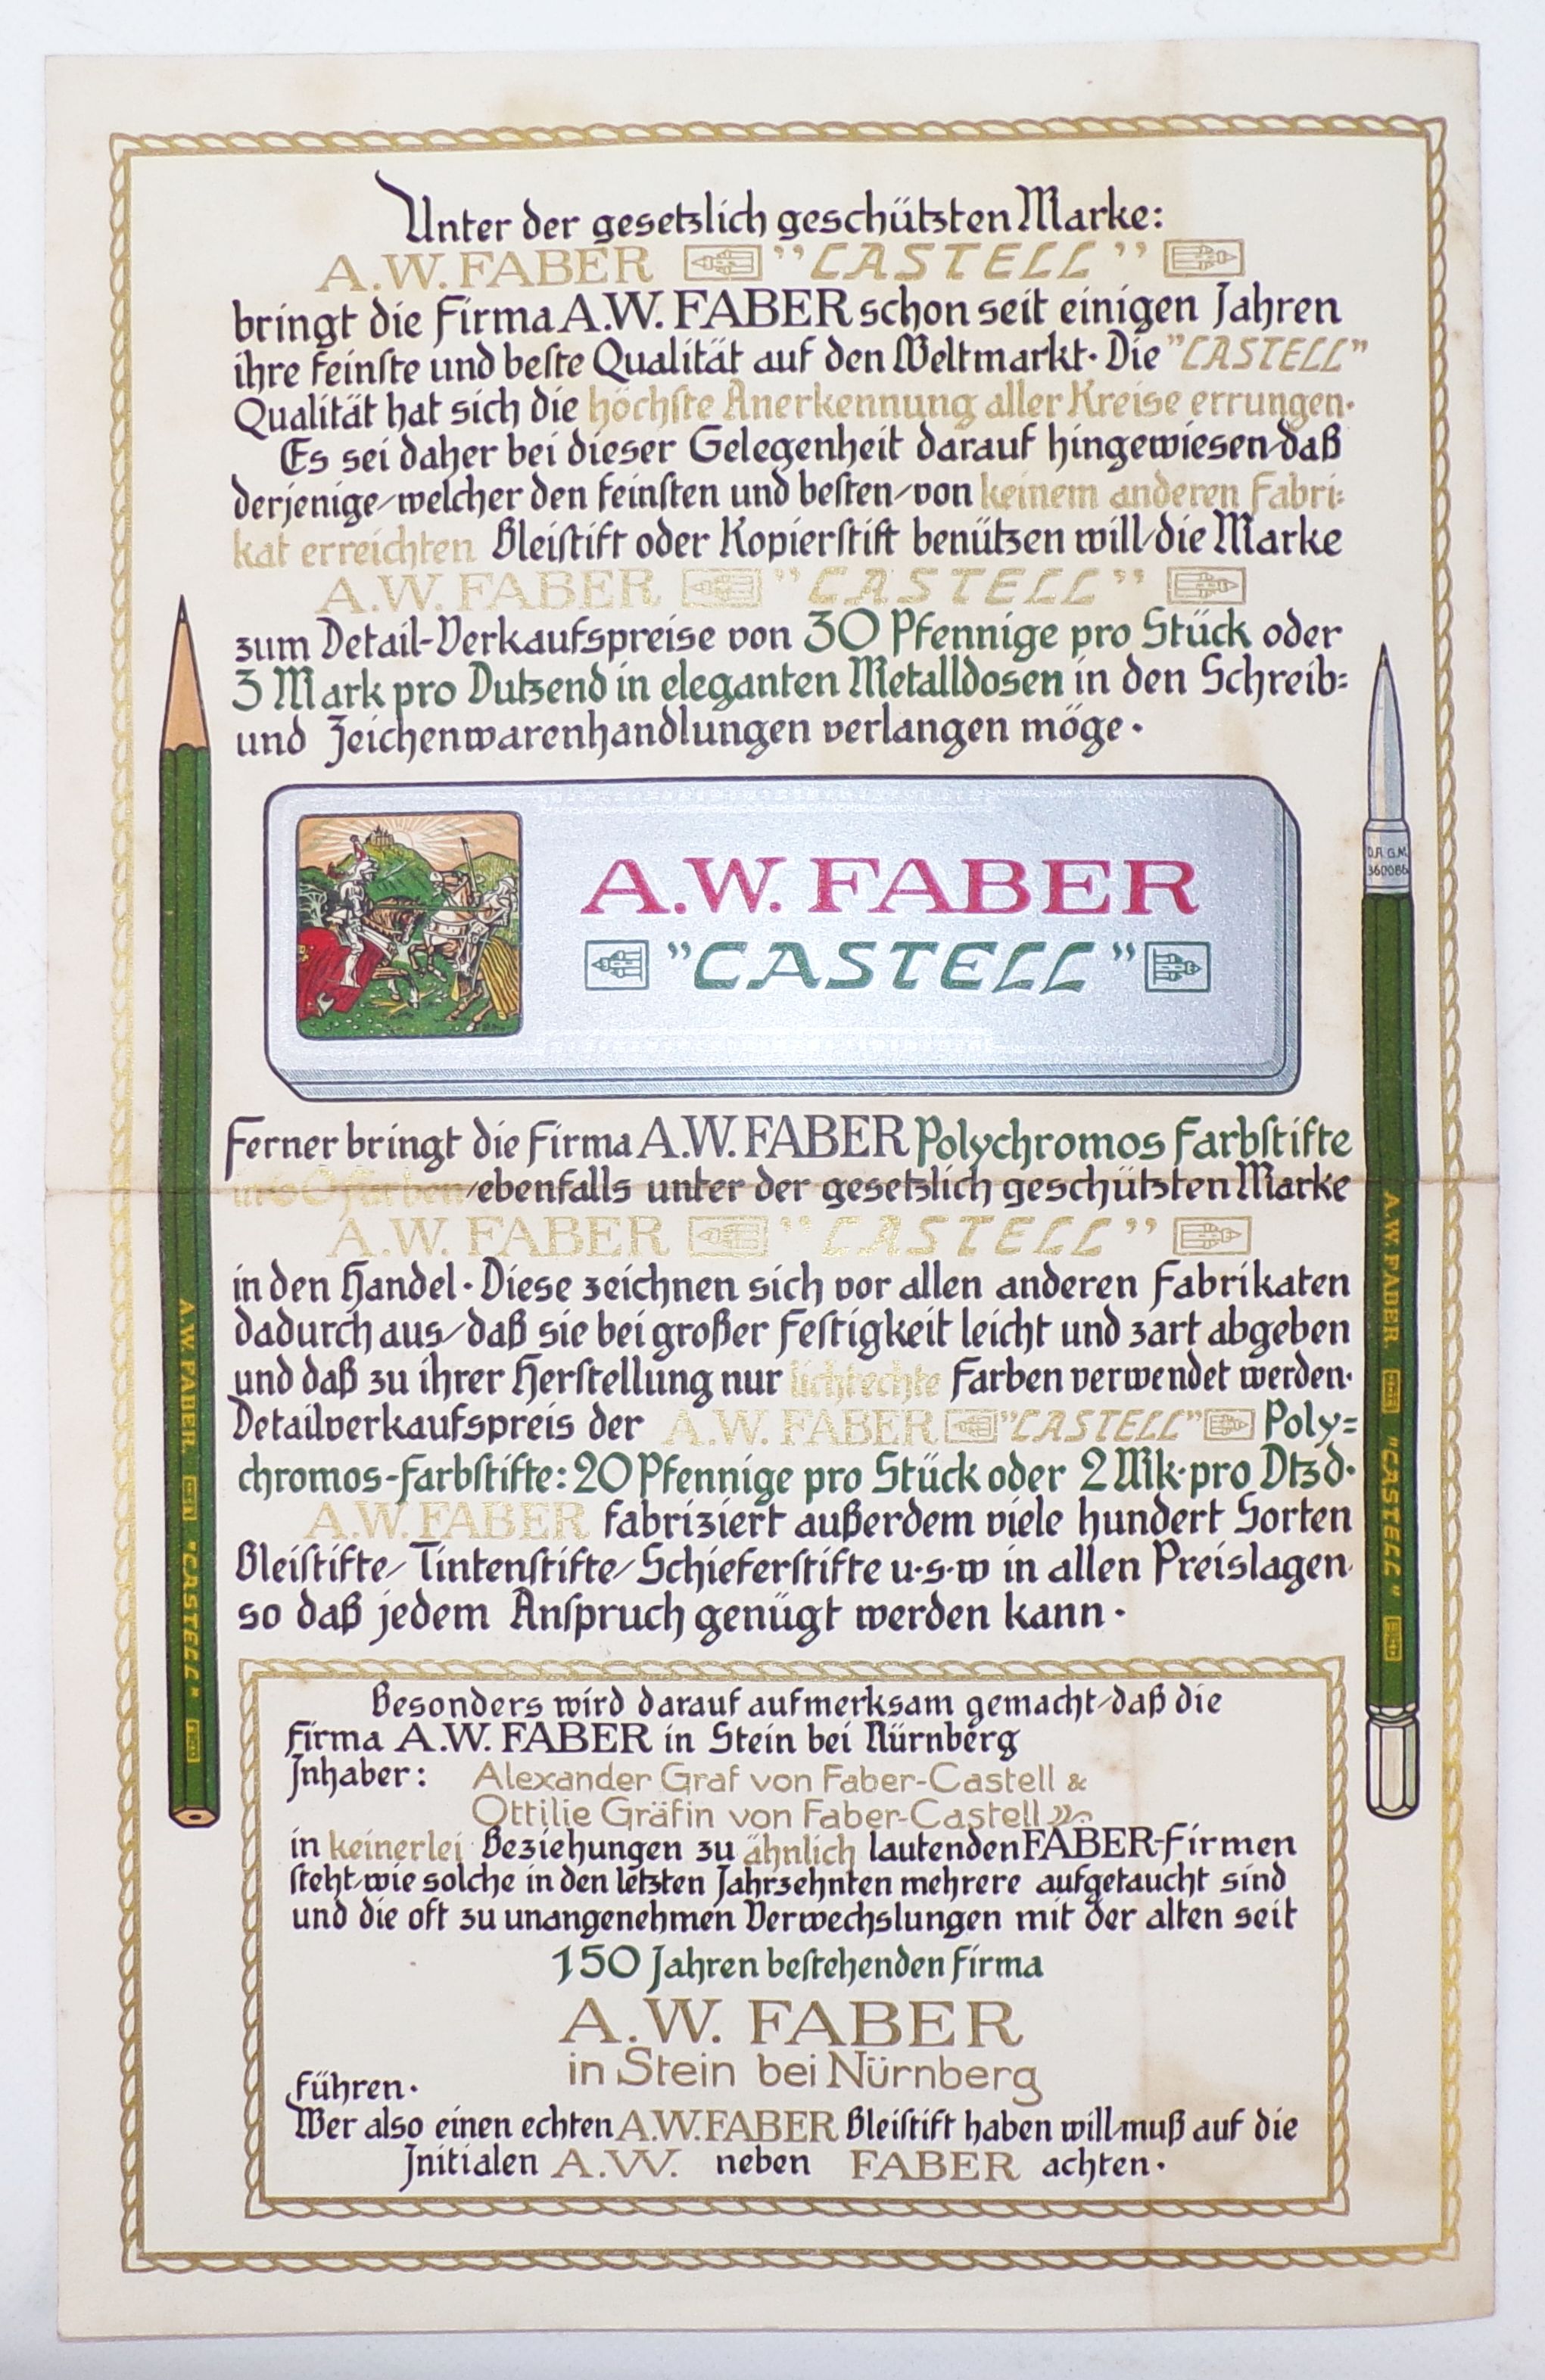 Unter der gesetzlich geschützten Marke:
A.W. FABER "CASTELL"
bringt die Firma A.W. FABER schon seit einigen Jahren
ihre feinſte und beſte Qualität auf den Weltmarkt· Die "CASTELL"
Qualität hat sich die höchſte Anerkennung aller Kreise errungen·
Es sei daher bei dieser Gelegenheit darauf hingewiesen/daß
derjenige/welcher den feinſten und beſten/von keinem anderen Fabri=
kat erreichten Bleiſtift oder Kopierſtift benützen will/die Marke
A.W. FABER "CASTELL"
zum Detail-Verkaufspreise von 30 Pfennige pro Stück oder
3 Mark pro Dutzend in eleganten Metalldosen in den Schreib=
und Zeichenwarenhandlungen verlangen möge·
A.W. FABER
"CASTELL"
D.R.G.M.
360086
Ferner bringt die Firma A.W. FABER Polychromos Farbſtifte
in 60 Farben/ebenfalls unter der gesetzlich geschützten Marke
A.W. FABER "CASTELL"
in den Handel· Diese zeichnen sich vor allen anderen Fabrikaten
dadurch aus/daß sie bei großer Feſtigkeit leicht und zart abgeben
und daß zu ihrer Herſtellung nur lichtechte Farben verwendet werden·
Detailverkaufspreis der A.W. FABER "CASTELL" Poly=
chromos-Farbſtifte: 20 Pfennige pro Stück oder 2 Mk·pro Dtzd·
A.W. FABER fabriziert außerdem viele hundert Sorten
Bleiſtifte/Tintenſtifte/Schieferſtifte u·s·w in allen Preislagen
so daß jedem Anſpruch genügt werden kann·
A.W. FABER. "CASTELL"
A.W. FABER. "CASTELL"
Besonders wird darauf aufmerksam gemacht/daß die
Firma A.W. FABER in Stein bei Nürnberg
Inhaber: Alexander Graf von Faber-Castell &
Ottilie Gräfin von Faber-Castell
in keinerlei Beziehungen zu ähnlich lautenden FABER-Firmen
ſteht/wie solche in den letzten Jahrzehnten mehrere aufgetaucht sind
und die oft zu unangenehmen Verwechslungen mit der alten seit
150 Jahren beſtehenden Firma
A.W. FABER
in Stein bei Nürnberg
führen·
Wer also einen echten A.W. FABER Bleiſtift haben will/muß auf die
Initialen A.W. neben FABER achten·